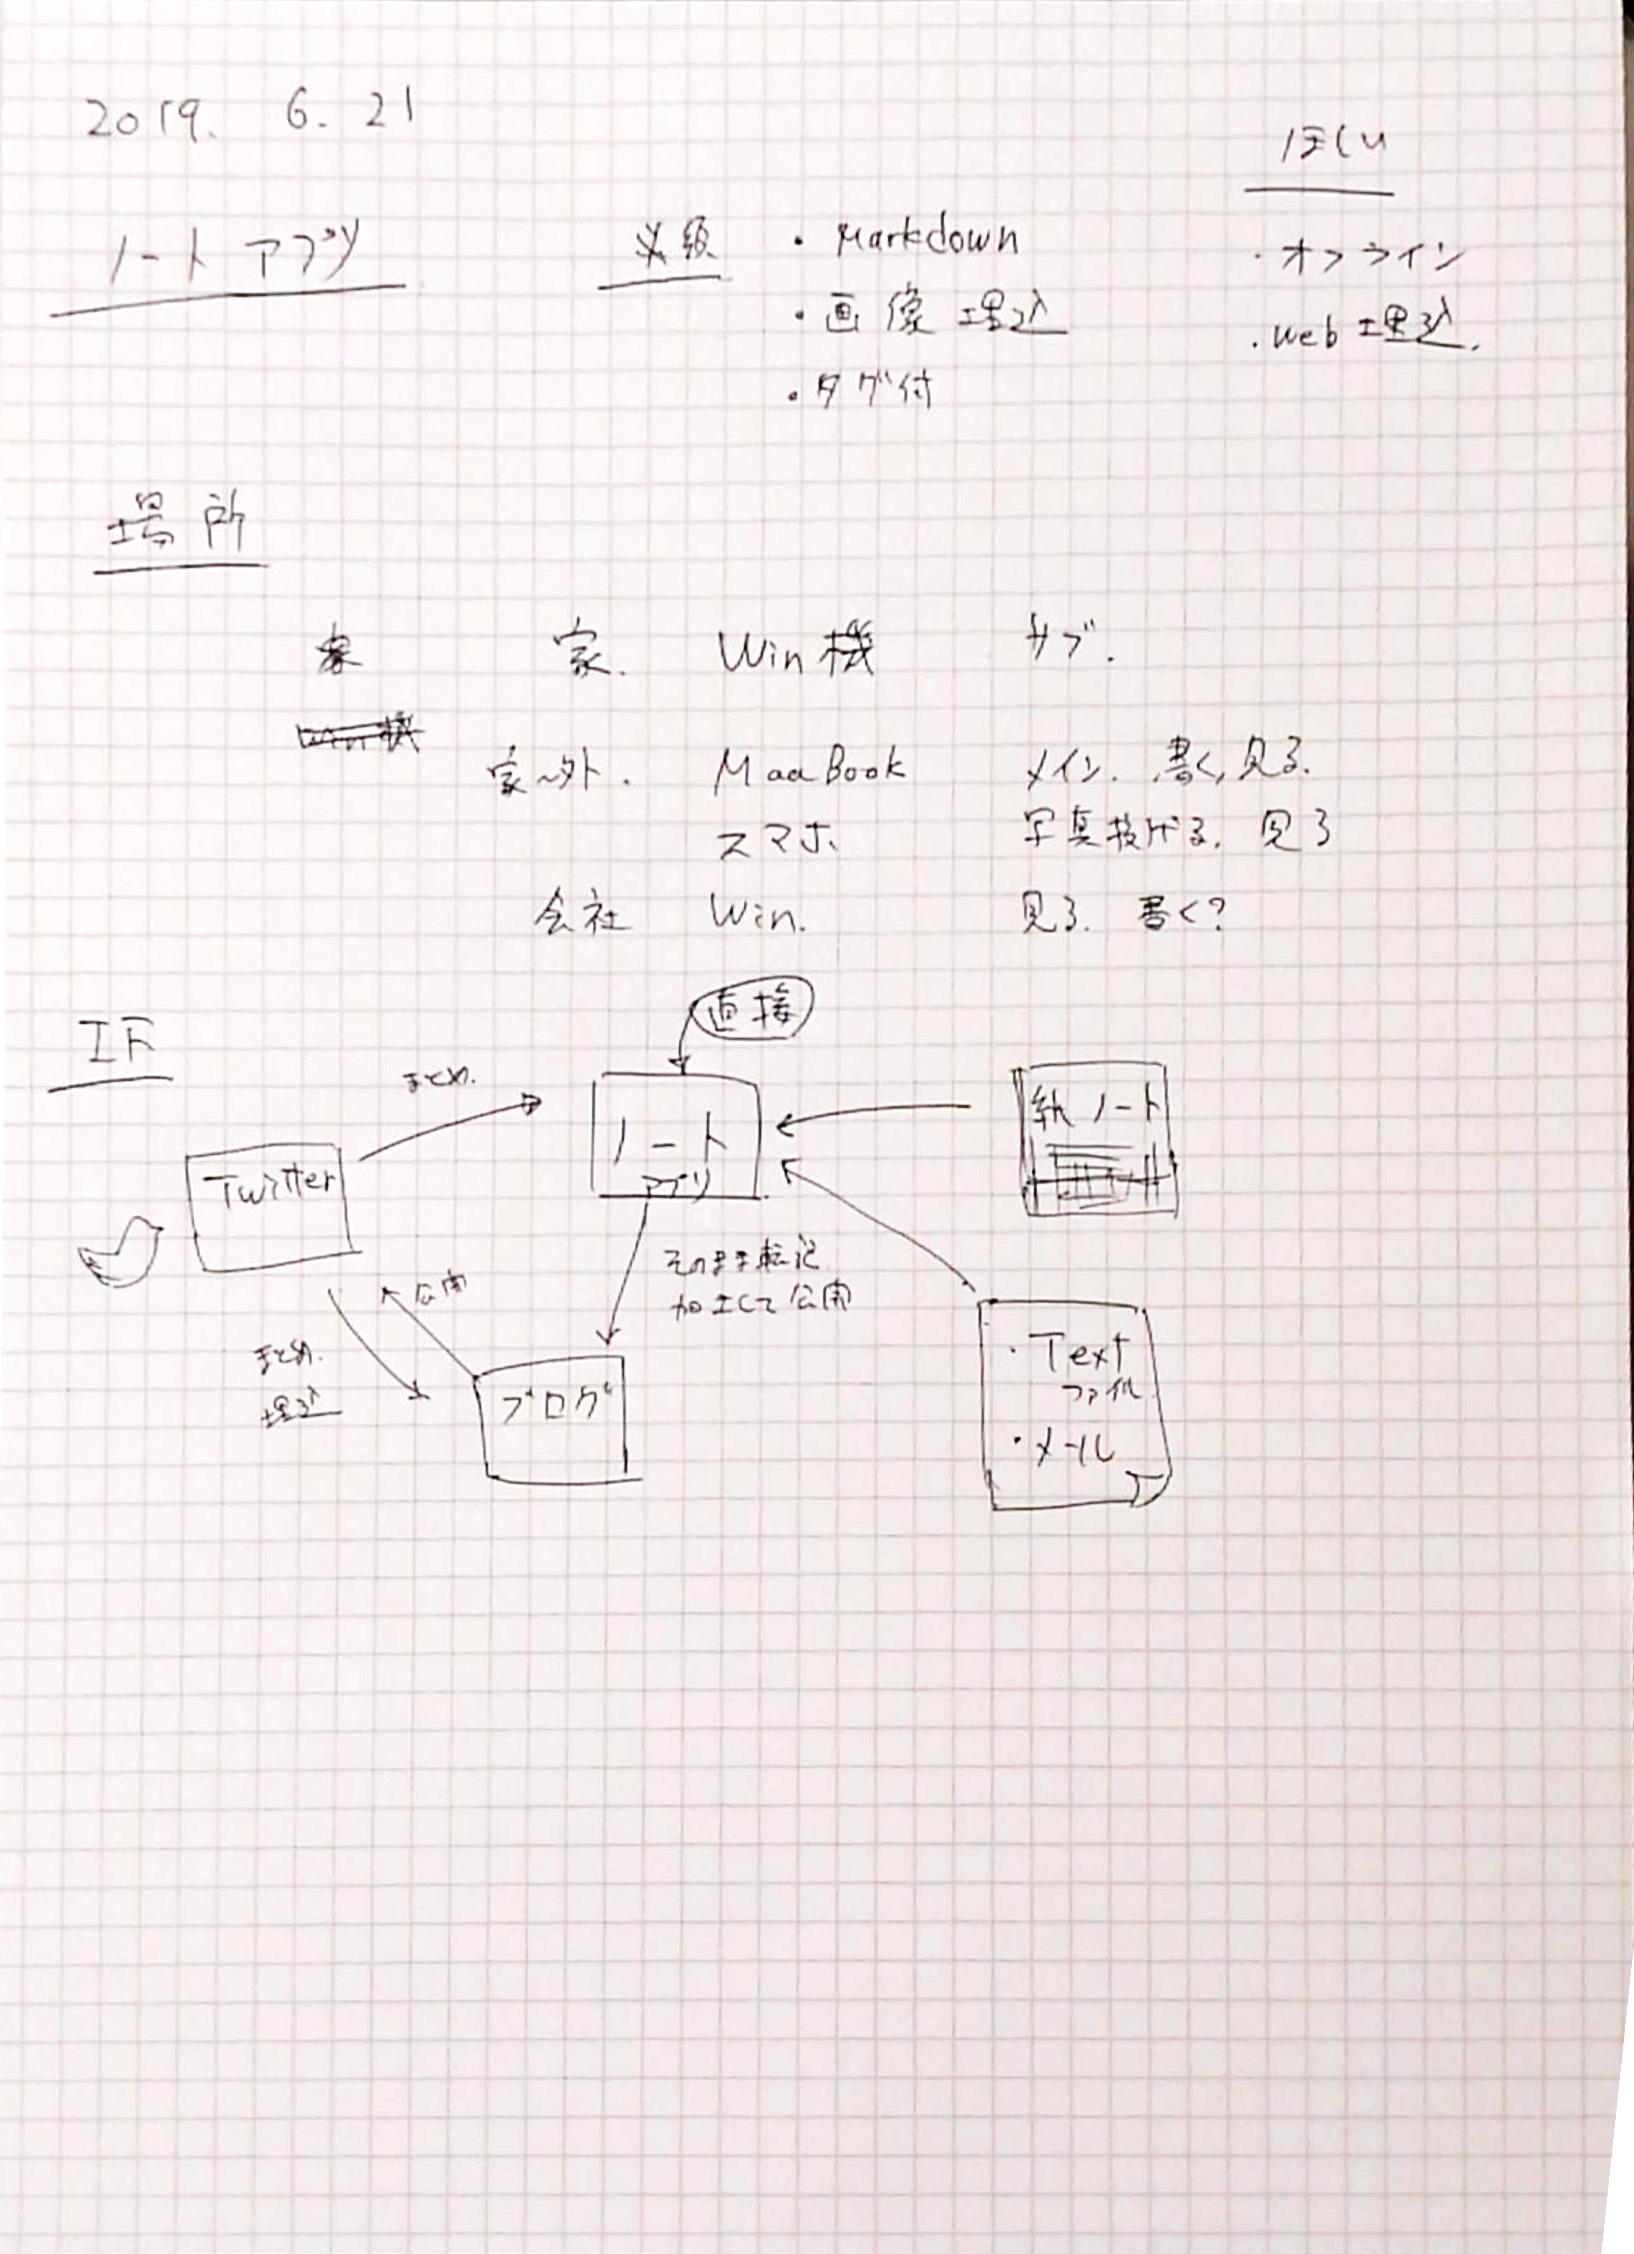 2019. 6. 21
ノートアプリ
必須
・Markdown
・画像埋込
・タグ付
ほしい
・オフライン
・Web埋込.
場所
家. Win機 サブ.
家~外. MacBook メイン. 書く, 見る.
スマホ 写真投げる. 見る
会社 Win. 見る. 書く?
IF
直接
まとめ.
ノート
アプリ
紙ノート
Twitter
公開
そのまま転記
加工して公開
まとめ.
埋込
ブログ
・Text
ファイル
・メール